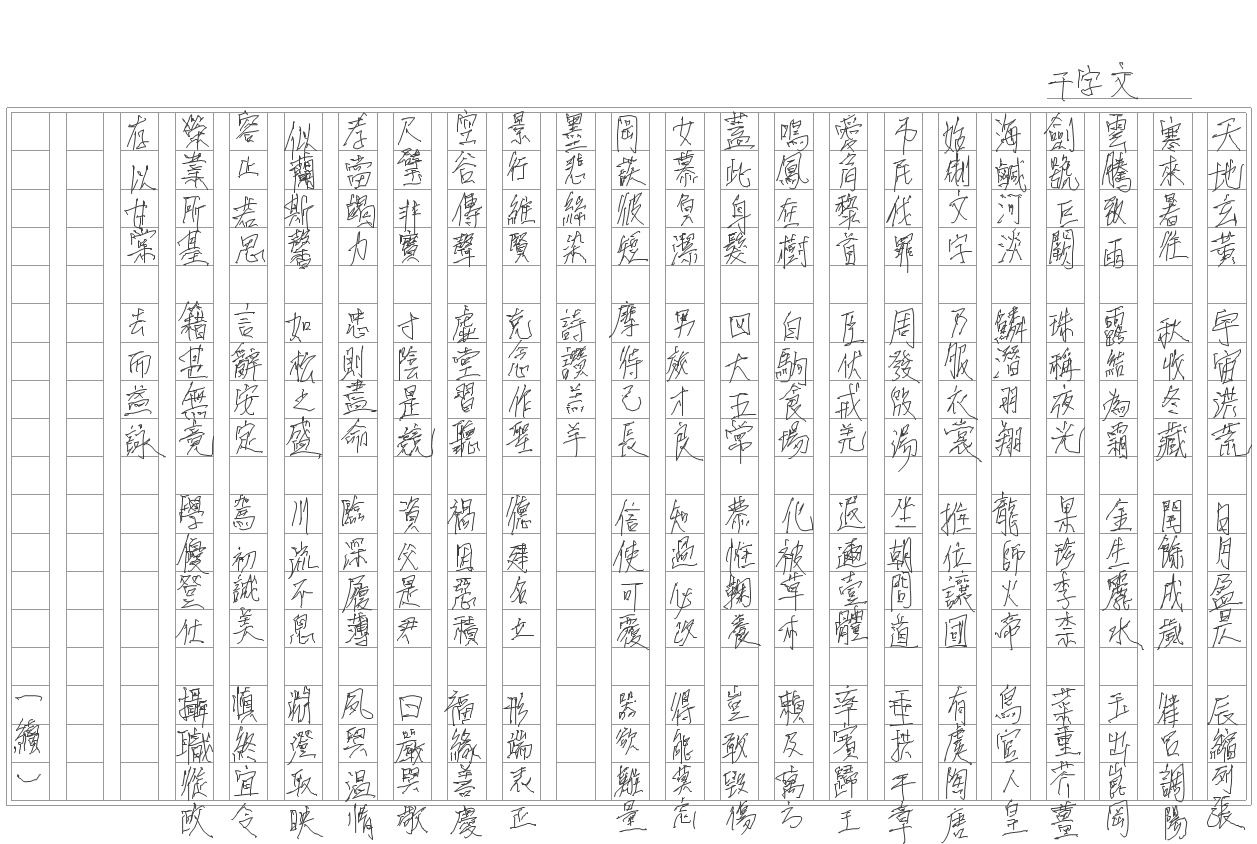 千字文
天地玄黃 宇宙洪荒 日月盈昃 辰縮列張
寒來暑往 秋收冬藏 閏餘成歲 律呂調陽
雲騰致雨 露結為霜 金生麗水 玉出崑岡
劍號巨闕 珠稱夜光 果珍李柰 菜重芥薑
海鹹河淡 鱗潛羽翔 龍師火帝 鳥官人皇
始制文字 乃服衣裳 推位讓國 有虞陶唐
吊民伐罪 周發殷湯 坐朝問道 垂拱平章
愛育黎首 臣伏戎羌 遐邇壹體 率賓歸王
鳴鳳在樹 白駒食場 化被草木 賴及萬方
蓋此身髮 四大五常 恭惟鞠養 豈敢毀傷
女慕貞潔 男效才良 知過必改 得能莫忘
罔談彼短 摩恃己長 信使可覆 器欲難量
墨悲絲染 詩讚羔羊
景行維賢 克念作聖 德建名立 形端表正
空谷傳聲 虛堂習聽 禍因惡積 福緣善慶
尺璧非寶 寸陰是競 資父是君 曰嚴與敬
孝當竭力 忠則盡命 臨深履薄 夙興溫情
似蘭斯馨 如松之盛 川流不息 淵澄取映
容止若思 言辭安定 篤初誠美 慎終宜令
榮業所基 籍甚無竟 學優登仕 攝職從政
存以甘棠 去而益詠
(續)